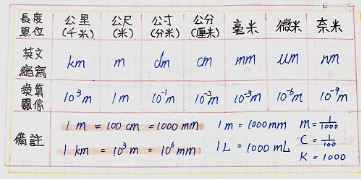 長度單位 公里(千米) 公尺(米) 公寸(分米) 公分(厘米) 毫米 微米 奈米
英文縮寫 km m dm cm mm μm nm
換算關係 10⁻³m 1m 10⁻¹m 10⁻²m 10⁻³m 10⁻⁶m 10⁻⁹m
備註 1 m = 100 cm = 1000 mm 1 m = 1000 mm m = 1/1000
1 km = 10³ m = 10⁶ mm 1 L = 1000 mL C = 1/100
K = 1000